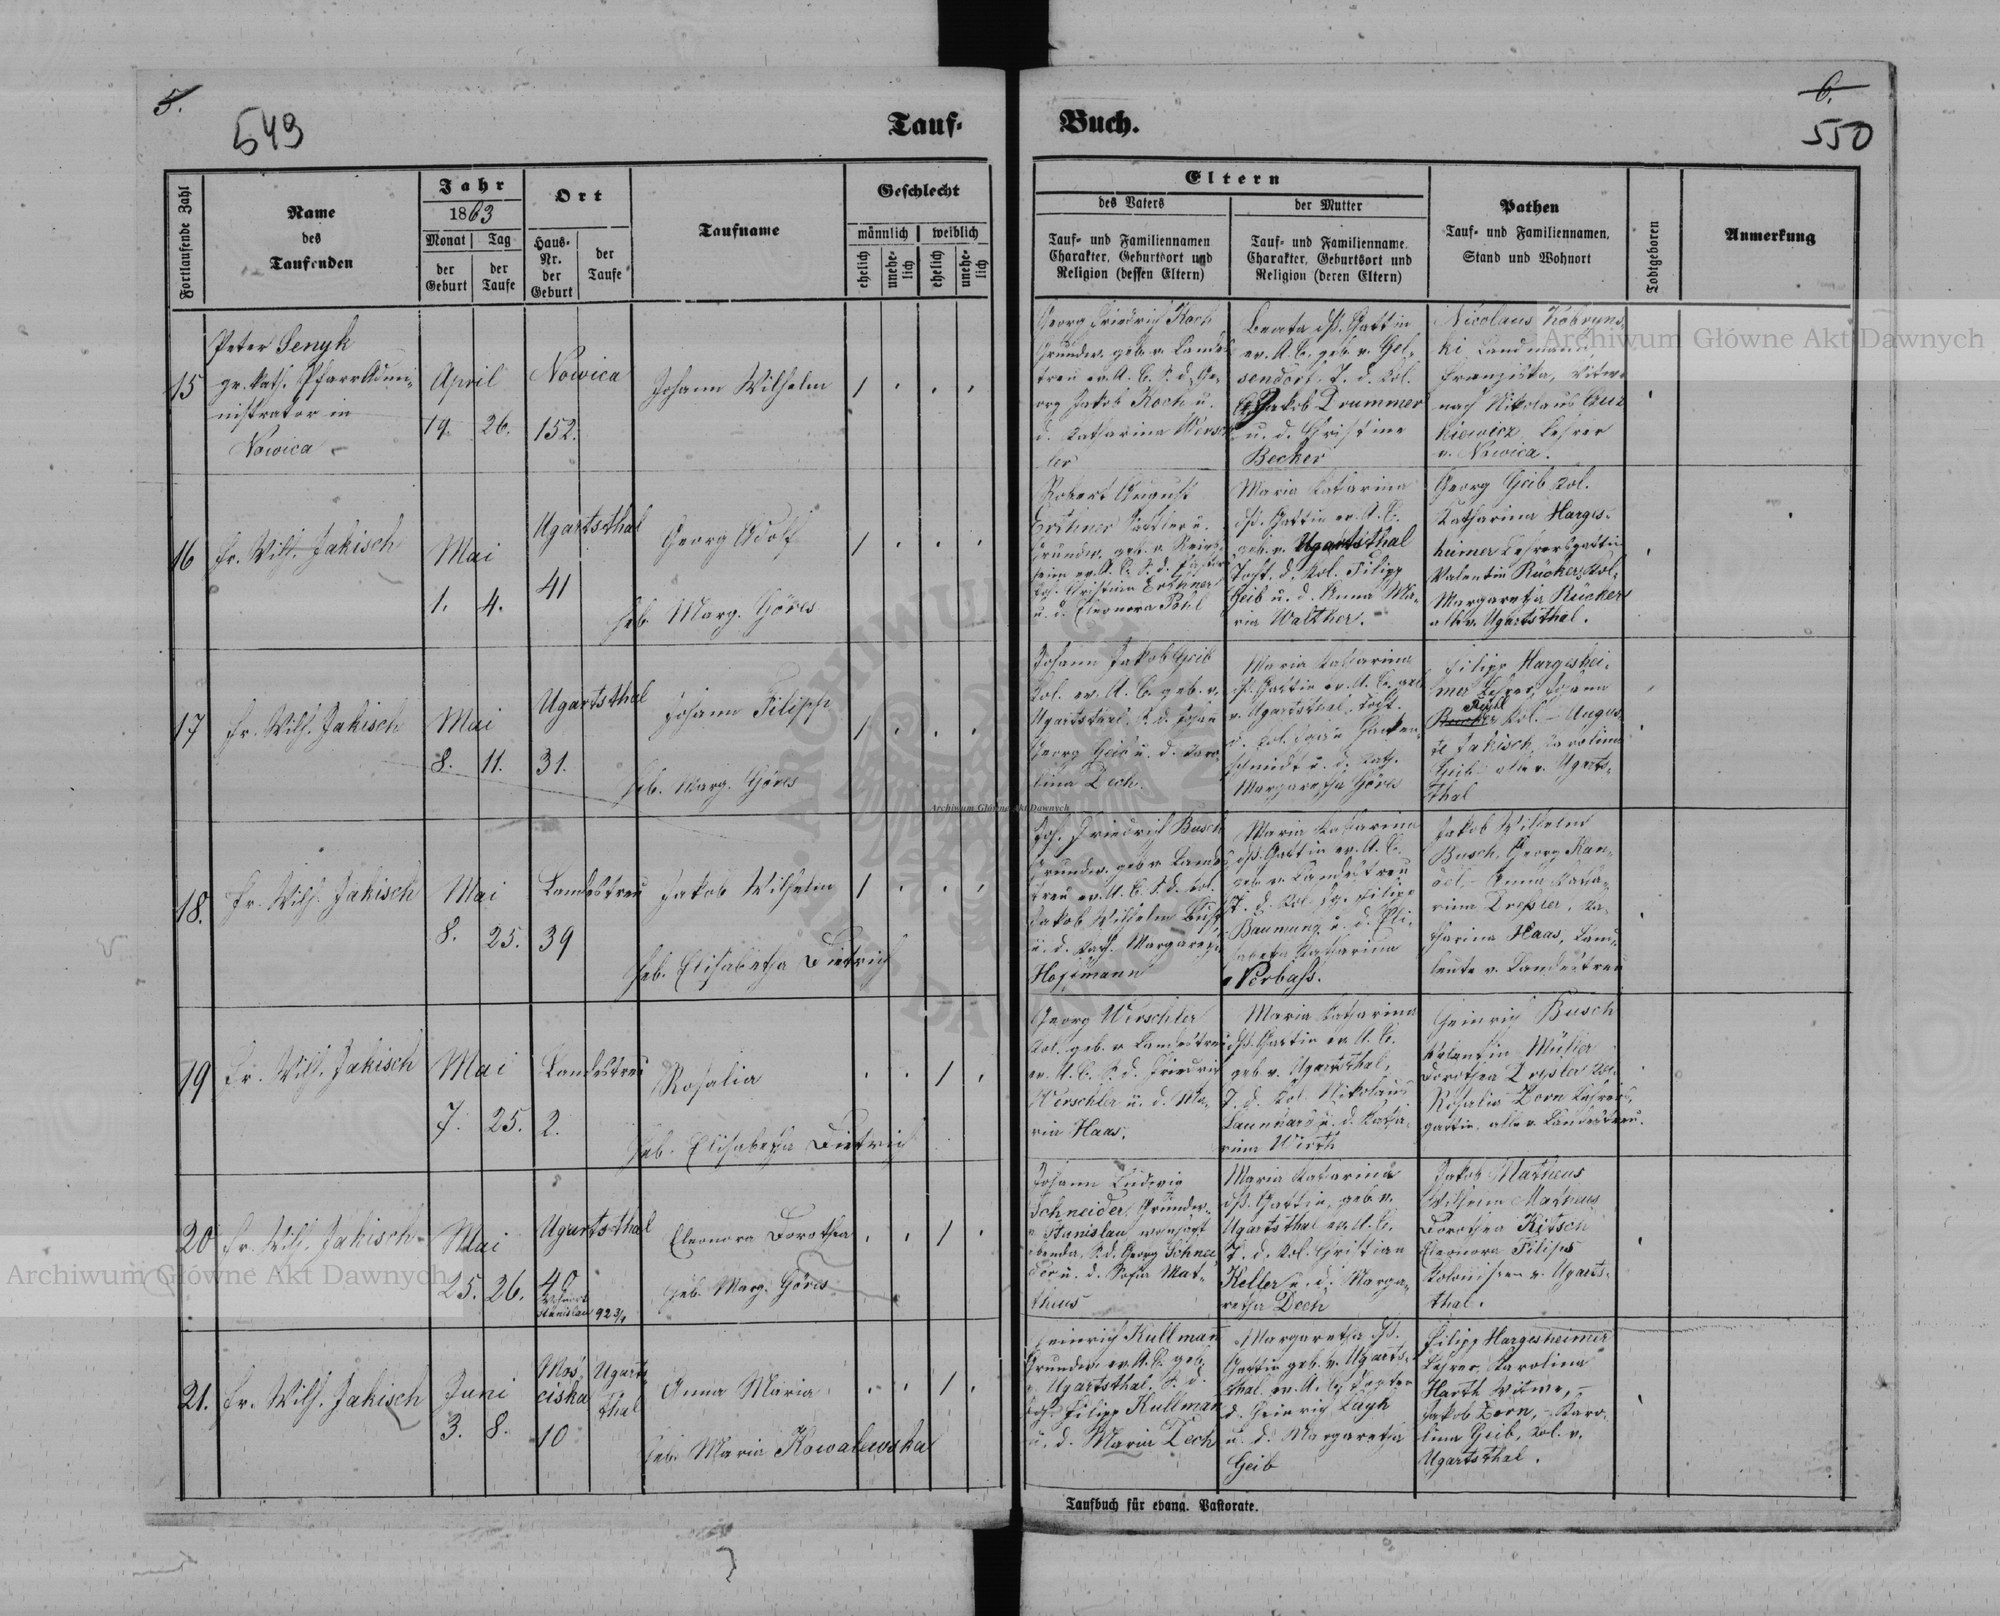 5.
549
Tauf-
Buch.
6.
550
Fortlaufende Zahl
Name
des
Taufenden
Jahr
1863
Monat
Tag
der
Geburt
der
Taufe
Ort
Haus-
Nr.
der
Geburt
der
Taufe
Taufname
Geschlecht
männlich
weiblich
ehelich
unehe-
lich
ehelich
unehe-
lich
Eltern
des Vaters
Tauf- und Familiennamen
Charakter, Geburtsort und
Religion (dessen Eltern)
der Mutter
Tauf- und Familienname,
Charakter, Geburtsort und
Religion (deren Eltern)
Pathen
Tauf- und Familiennamen,
Stand und Wohnort
Todtgeboren
Anmerkung
15
Peter Senyk
gr. kath. Pfarr Admi-
nistrator in
Nowica
April
19. 26.
Nowica
152.
Johann Wilhelm
1
Georg Friedrich Koch
Grundw. geb. v. Landes
treu ev. A. C. S. d. Ge-
org Jakob Koch u.
d. Katharina Wersch
ler
Beata dss. Gattin
ev. A. C. geb. v. Gel-
sendorf, T. d. Kol.
Jakob Drummer
u. d. Christine
Becker
Nicolaus Kobryns
ki Landmann
Franziska, Witwe
nach Nikolaus Gur
kiewicz Lehrer
v. Nowica.
16
Fr. Wilh. Jakisch
Mai
1. 4.
Ugartsthal
41
Georg Adolf
Heb. Marg. Göres
1
Robert August
Erthner Sattler u.
Grundw. geb. v.
Joh. Christian Erthner
u. d. Eleonora Pohl
Maria Katarina
dss. Gattin ev. A. C.
geb. v. Ugartsthal
Toch. d. Kol. Filipp
Geib u. d. Anna Ma-
ria Walther.
Georg Geib Kol.
Katharina Harges-
heimer Lehrersgattin
Valentin Rücker Kol.
Margaretha Rücker
alle v. Ugartsthal.
17
Fr. Wilh. Jakisch
Mai
8. 11.
Ugartsthal
31.
Johann Filipp
Heb. Marg. Göres
1
Johann Jakob Geib
Kol. ev. A. C. geb. v.
Ugartsthal. S. d. Johan
Georg Geib u. d. Karo
lina Dech.
Maria Katharina
dss. Gattin ev. A. C. geb.
v. Ugartsthal, Toch.
d. Kol. Johan Hacken-
schmidt u. d. Kath.
Margaretha Göres
Filipp Hargeshei-
mer Lehrer, Johann
Kol. – Augus
te Jakisch, Karolina
Geib alle v. Ugarts-
thal
18.
Fr. Wilh. Jakisch
Mai
8. 25.
Landestreu
39
Jakob Wilhelm
Heb. Elisabetha Dietrich
1
Joh. Friedrich Busch
Grundw. geb v. Landes
treu ev. A. C. S. d. Kol.
Jakob Wilhelm Busch
u. d. Kath. Margaretha
Hoffmann
Maria Katharina
dss. Gattin ev. A. C.
geb. v. Landestreu
T. d. Kol. Joh. Filipp
Baumung u. d. Eli-
sabetha Katharina
Verbass.
Jakob Wilhelm
Busch, Georg Kan-
del, – Anna Katha-
rina Dressler, Ka-
tharina Haas, Land-
leute v. Landestreu
19
Fr. Wilh. Jakisch
Mai
7. 25.
Landestreu
2.
Rosalia
Heb. Elisabetha Dietrich
1
Georg Werschler
Kol. geb. v. Landestreu
ev. A. C. S. d. Friedrich
Werschler u. d. Ma-
ria Haas.
Maria Katharina
dss. Gattin ev. A. C.
geb. v. Ugartsthal,
T. d. Kol. Nikolaus
Launhard u. d. Katha-
rina Wirth
Heinrich Busch
Valentin Müller
Dorothea Dressler
Rosalia Zorn Lehrers-
gattin, alle v. Landestreu.
20
Fr. Wilh. Jakisch
Mai
25. 26.
Ugartsthal
40
Stanislau 92 3/4
Eleonora Dorothea
Heb. Marg. Göres
1
Johann Ludwig
Schneider, Grundw.
v. Stanislau wohnhaft
ebenda, S. d. Georg Schnei
der u. d. Sofia Mat-
theus
Maria Katarina
dss. Gattin, geb. v.
Ugartsthal ev. A. C.
T. d. Kol. Christian
Keller u. d. Marga-
retha Dech
Jakob Matheus
Wilhelm Matheus
Dorothea Kirsch
Eleonora Filips
Kolonisten v. Ugarts-
thal.
21.
Fr. Wilh. Jakisch
Juni
3. 8.
Moś- Ugarts
ciska thal
10
Anna Maria
Heb. Maria Kowalewska
1
Heinrich Kullman
Grundw. ev. A. C. geb.
v. Ugartsthal, S. d.
Joh. Filipp Kullman
u. d. Maria Dech
Margaretha dss.
Gattin geb. v. Ugarts-
thal ev. A. C. Tochter
d. Heinrich Lugh
u. d. Margaretha
Geib
Filipp Hargesheimer
Lehrer, Karolina
Harth Witwe, –
Jakob Zorn, – Karo-
lina Geib, Kol. v.
Ugartsthal.
Taufbuch für evang. Pastorate.
Archiwum Główne Akt Dawnych
Archiwum Główne Akt Dawnych
Archiwum Główne Akt Dawnych